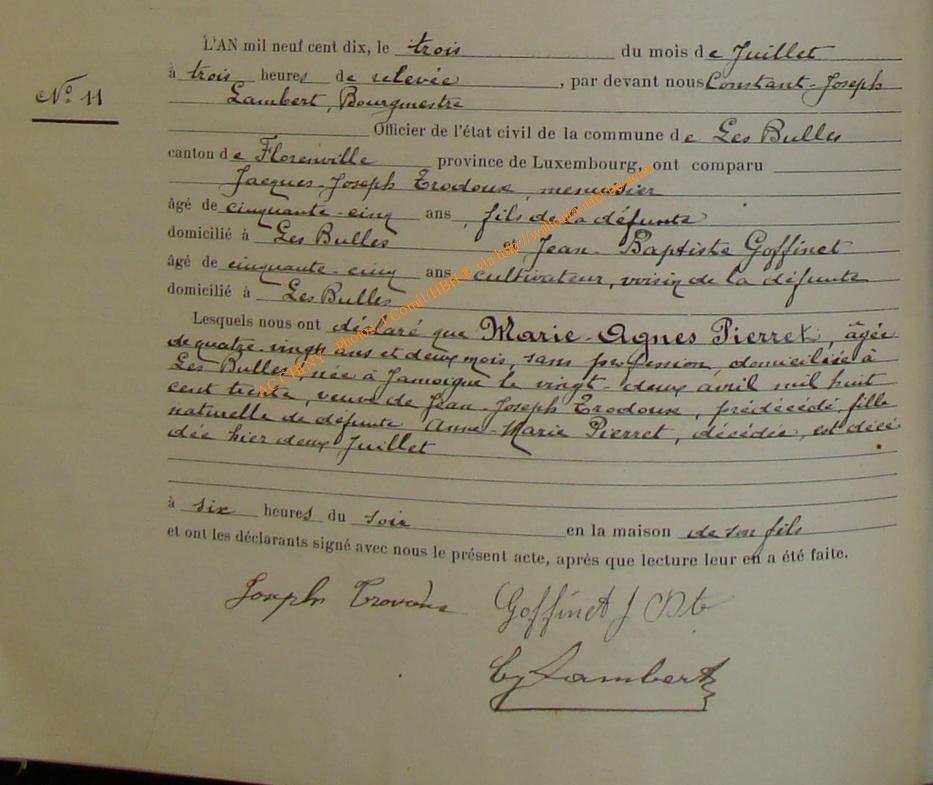 L'AN mil neuf cent dix, le trois du mois de Juillet
à trois heures de relevée, par devant nous Constant-Joseph
N° 11
Lambert, Bourgmestre
Officier de l'état civil de la commune de Les Bulles
canton de Florenville province de Luxembourg, ont comparu
Jacques-Joseph Trodoux, menuisier
âgé de cinquante-cinq ans, fils de la défunte
domicilié à Les Bulles et Jean-Baptiste Goffinet
âgé de cinquante-cinq ans cultivateur, voisin de la défunte
domicilié à Les Bulles
Lesquels nous ont déclaré que Marie-Agnes Pierret, âgée
de quatre-vingt ans et deux mois, sans profession, domiciliée à
Les Bulles, née à Jamoigne le vingt-deux avril mil huit
cent trente, veuve de Jean-Joseph Trodoux, prédécédé, fille
naturelle de défunte Anne-Marie Pierret, décédée, est décé
dée hier deux Juillet
à six heures du soir en la maison de son fils
et ont les déclarants signé avec nous le présent acte, après que lecture leur en a été faite.
Joseph Goffinet J Bte
Lambert
ACCHNY Photos J Cornil/HBH